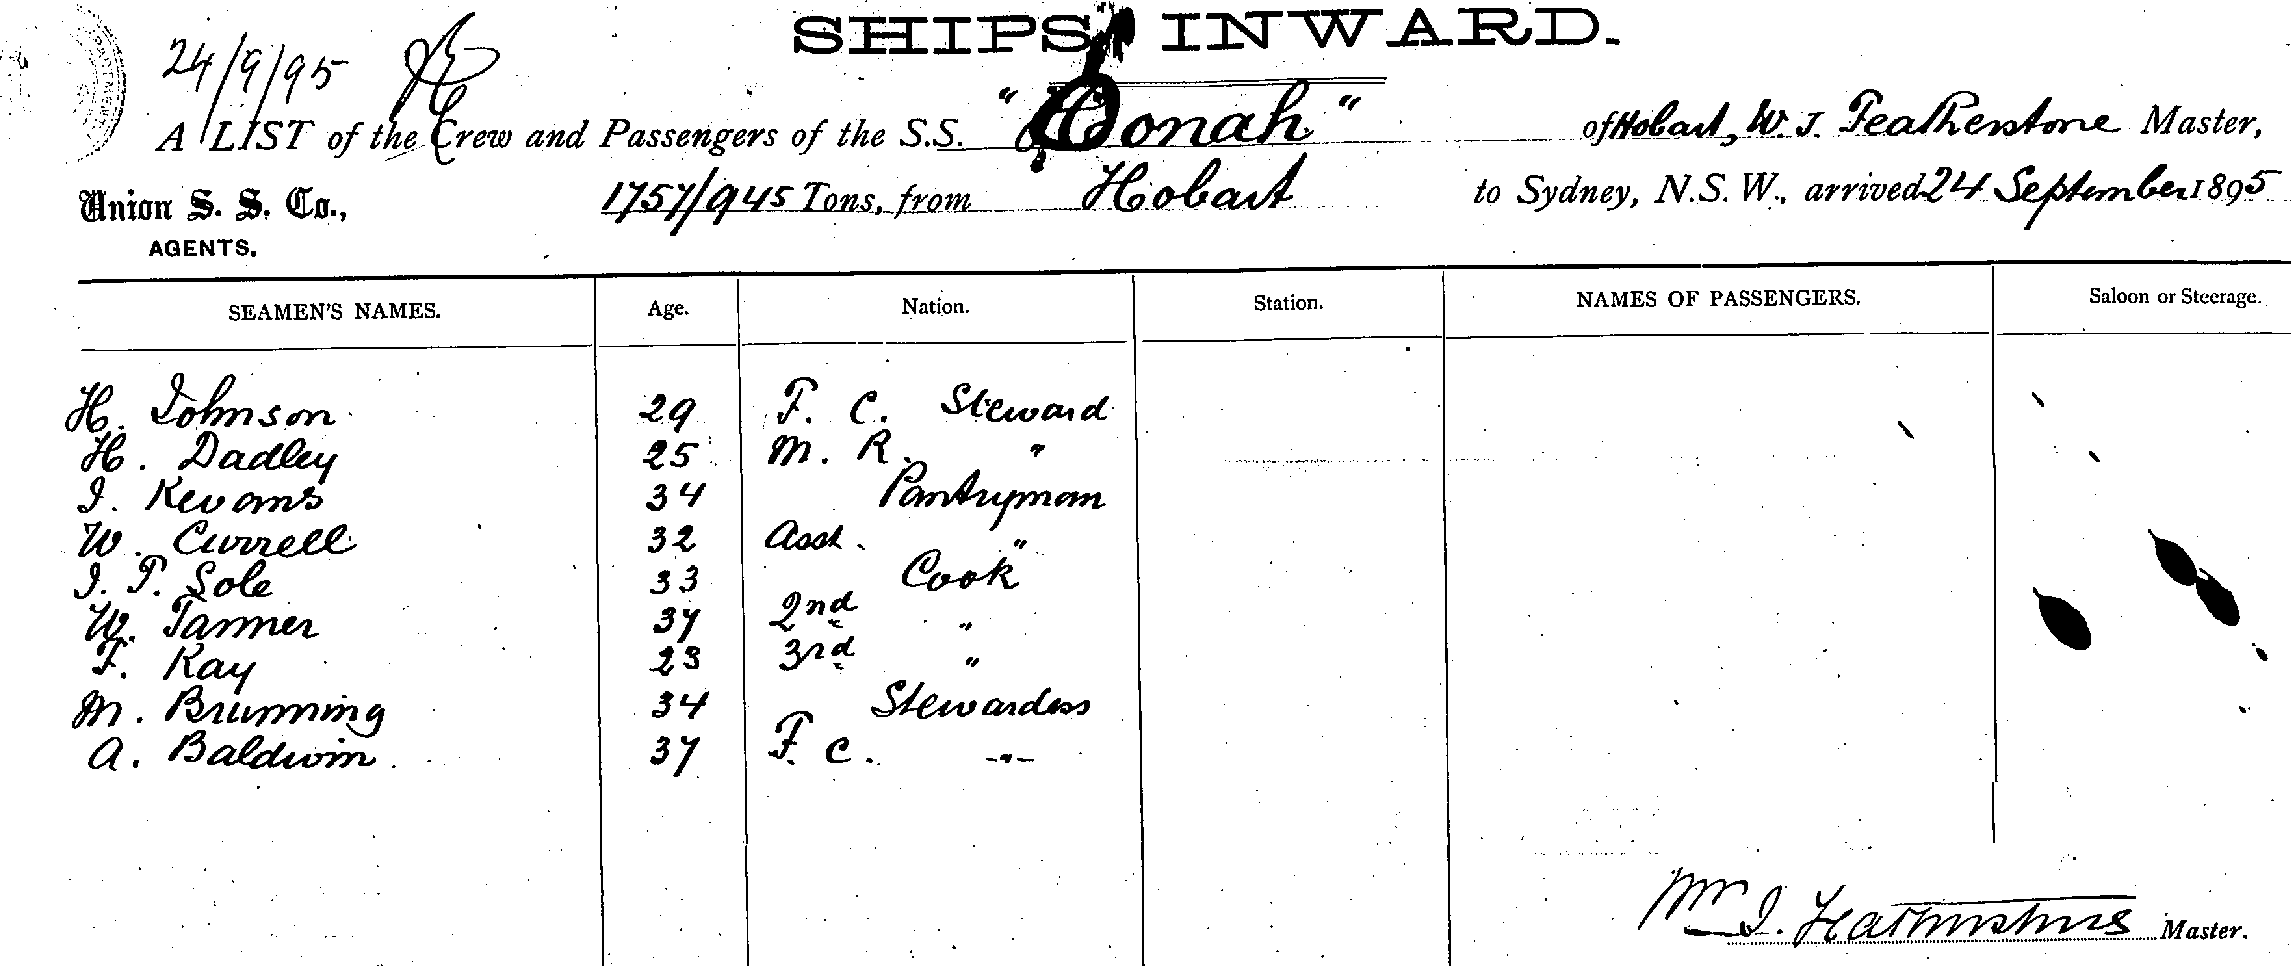 SHIPS INWARD.
24/9/95
A LIST of the Crew and Passengers of the S.S. "Oonah" of Hobart, W. J. Featherstone Master,
Union S. S. Co., 1757/945 Tons, from Hobart to Sydney, N.S.W., arrived 24 September 1895
AGENTS.
SEAMEN'S NAMES. Age. Nation. Station. NAMES OF PASSENGERS. Saloon or Steerage.
H. Johnson 29 F. C. Steward
H. Dadley 25 M. R. "
J. Kevans 34 Pantryman
W. Currell 32 Asst. "
J. P. Sole 33 Cook
W. Tanner 37 2nd "
F. Kay 23 3rd "
M. Brunning 34 Stewardess
A. Baldwin 37 F. C. -"-
Wm J. Featherstone Master.